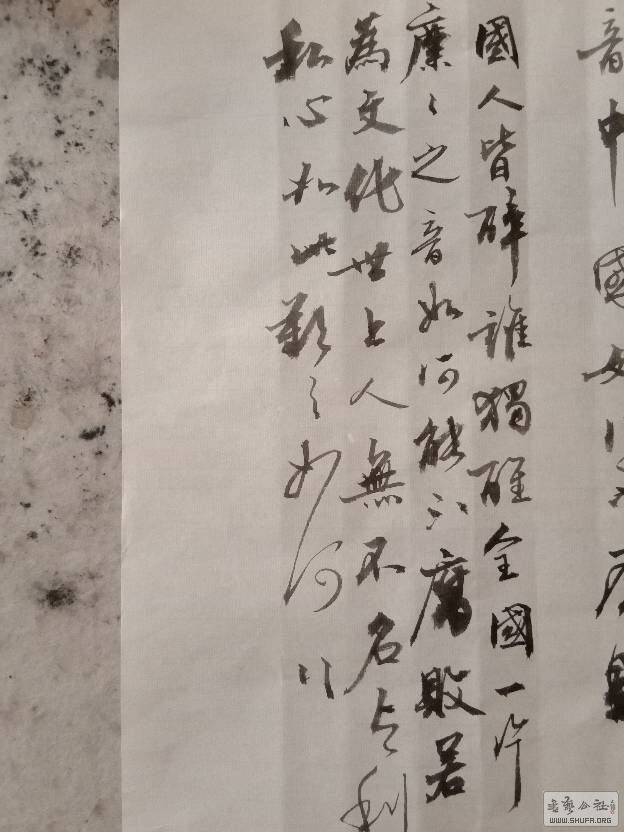 音中國如何不
國人皆醉誰獨醒全國一片
靡々之音如何能不腐敗若
為文化世上人無不名与利
私心如此歎々如何
书艺公社
WWW.SHUFA.ORG